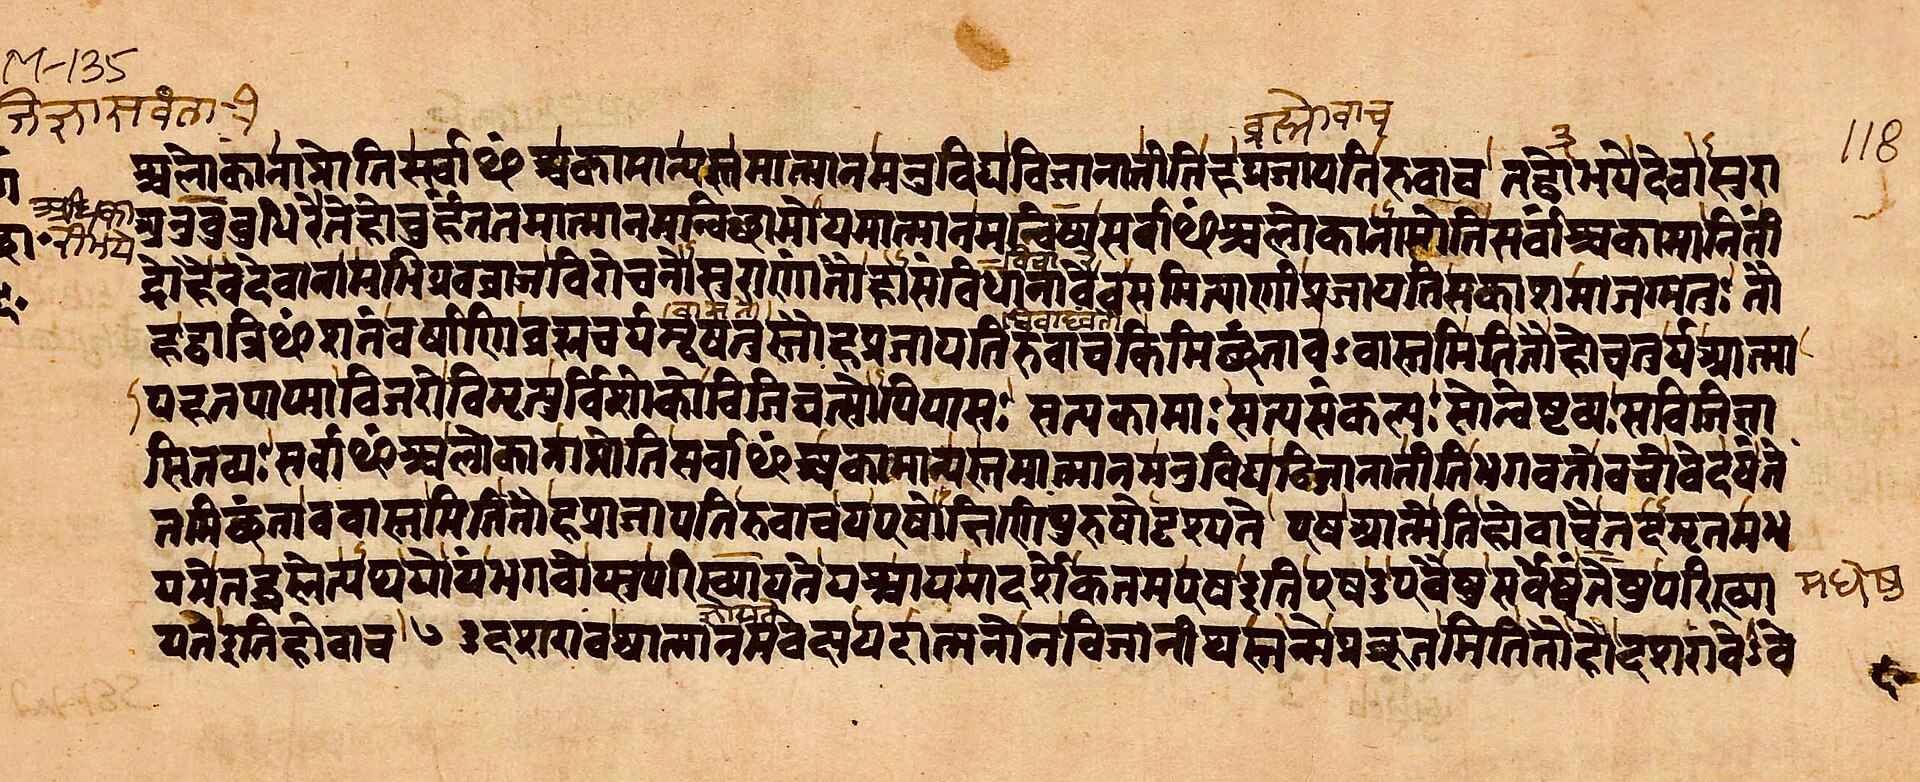 M-135
जिज्ञासवंता
ब्रह्मोवाच
118
श्चलोकानाप्नोति सर्वाꣳश्चकामान्यस्तमात्मानमनुविद्यविजानातीतिहप्रजापतिरुवाच तद्धोभयेदेवासुरा
अनुबुबुधिरेतेहोचुर्हंततमात्मानमन्विछामोयमात्मानमन्विष्यसर्वाꣳश्चलोकानाप्नोतिसर्वाꣳश्चकामानितीं
द्रोहैवदेवानामभिप्रवव्राजविरोचनोसुराणांतौहासंविदानावेवसमित्पाणीप्रजापतिसकाशमाजग्मतुः तौ
हद्वात्रिꣳशतंवर्षाणिब्रह्मचर्यमूषतुस्तौहप्रजापतिरुवाचकिमिछंताववास्तमितितौहोचतुर्यआत्मा
पहतपाप्माविजरोविमृत्युर्विशोकोविजिघत्सोपिपासः सत्यकामाः सत्यसंकल्पः सोन्वेष्टव्यः सविजिज्ञा
सितव्यः सर्वाꣳश्चलोकानाप्नोतिसर्वाꣳश्चकामान्यस्तमात्मानमनुविद्यविजानातीतिभगवतोवचोवेदयंते
तमिछंताववास्तमितितौहप्रजापतिरुवाचयएषोक्षिणीपुरुषोदृश्यते एषआत्मेतिहोवाचैतदमृतमभ
यमेतद्ब्रह्मेत्यथयोयंभगवोप्सुपरिख्यायतेयश्चायमादर्शेकतमएषइतिएषउएवैषुसर्वेष्वंतेषुपरिख्या
मध्येषु
यतेइतिहोवाच ७ उदशरावआत्मानमवेक्ष्ययदात्मनोनविजानीथस्तन्मेप्रब्रूतमितितौहोदशरावेऽवे